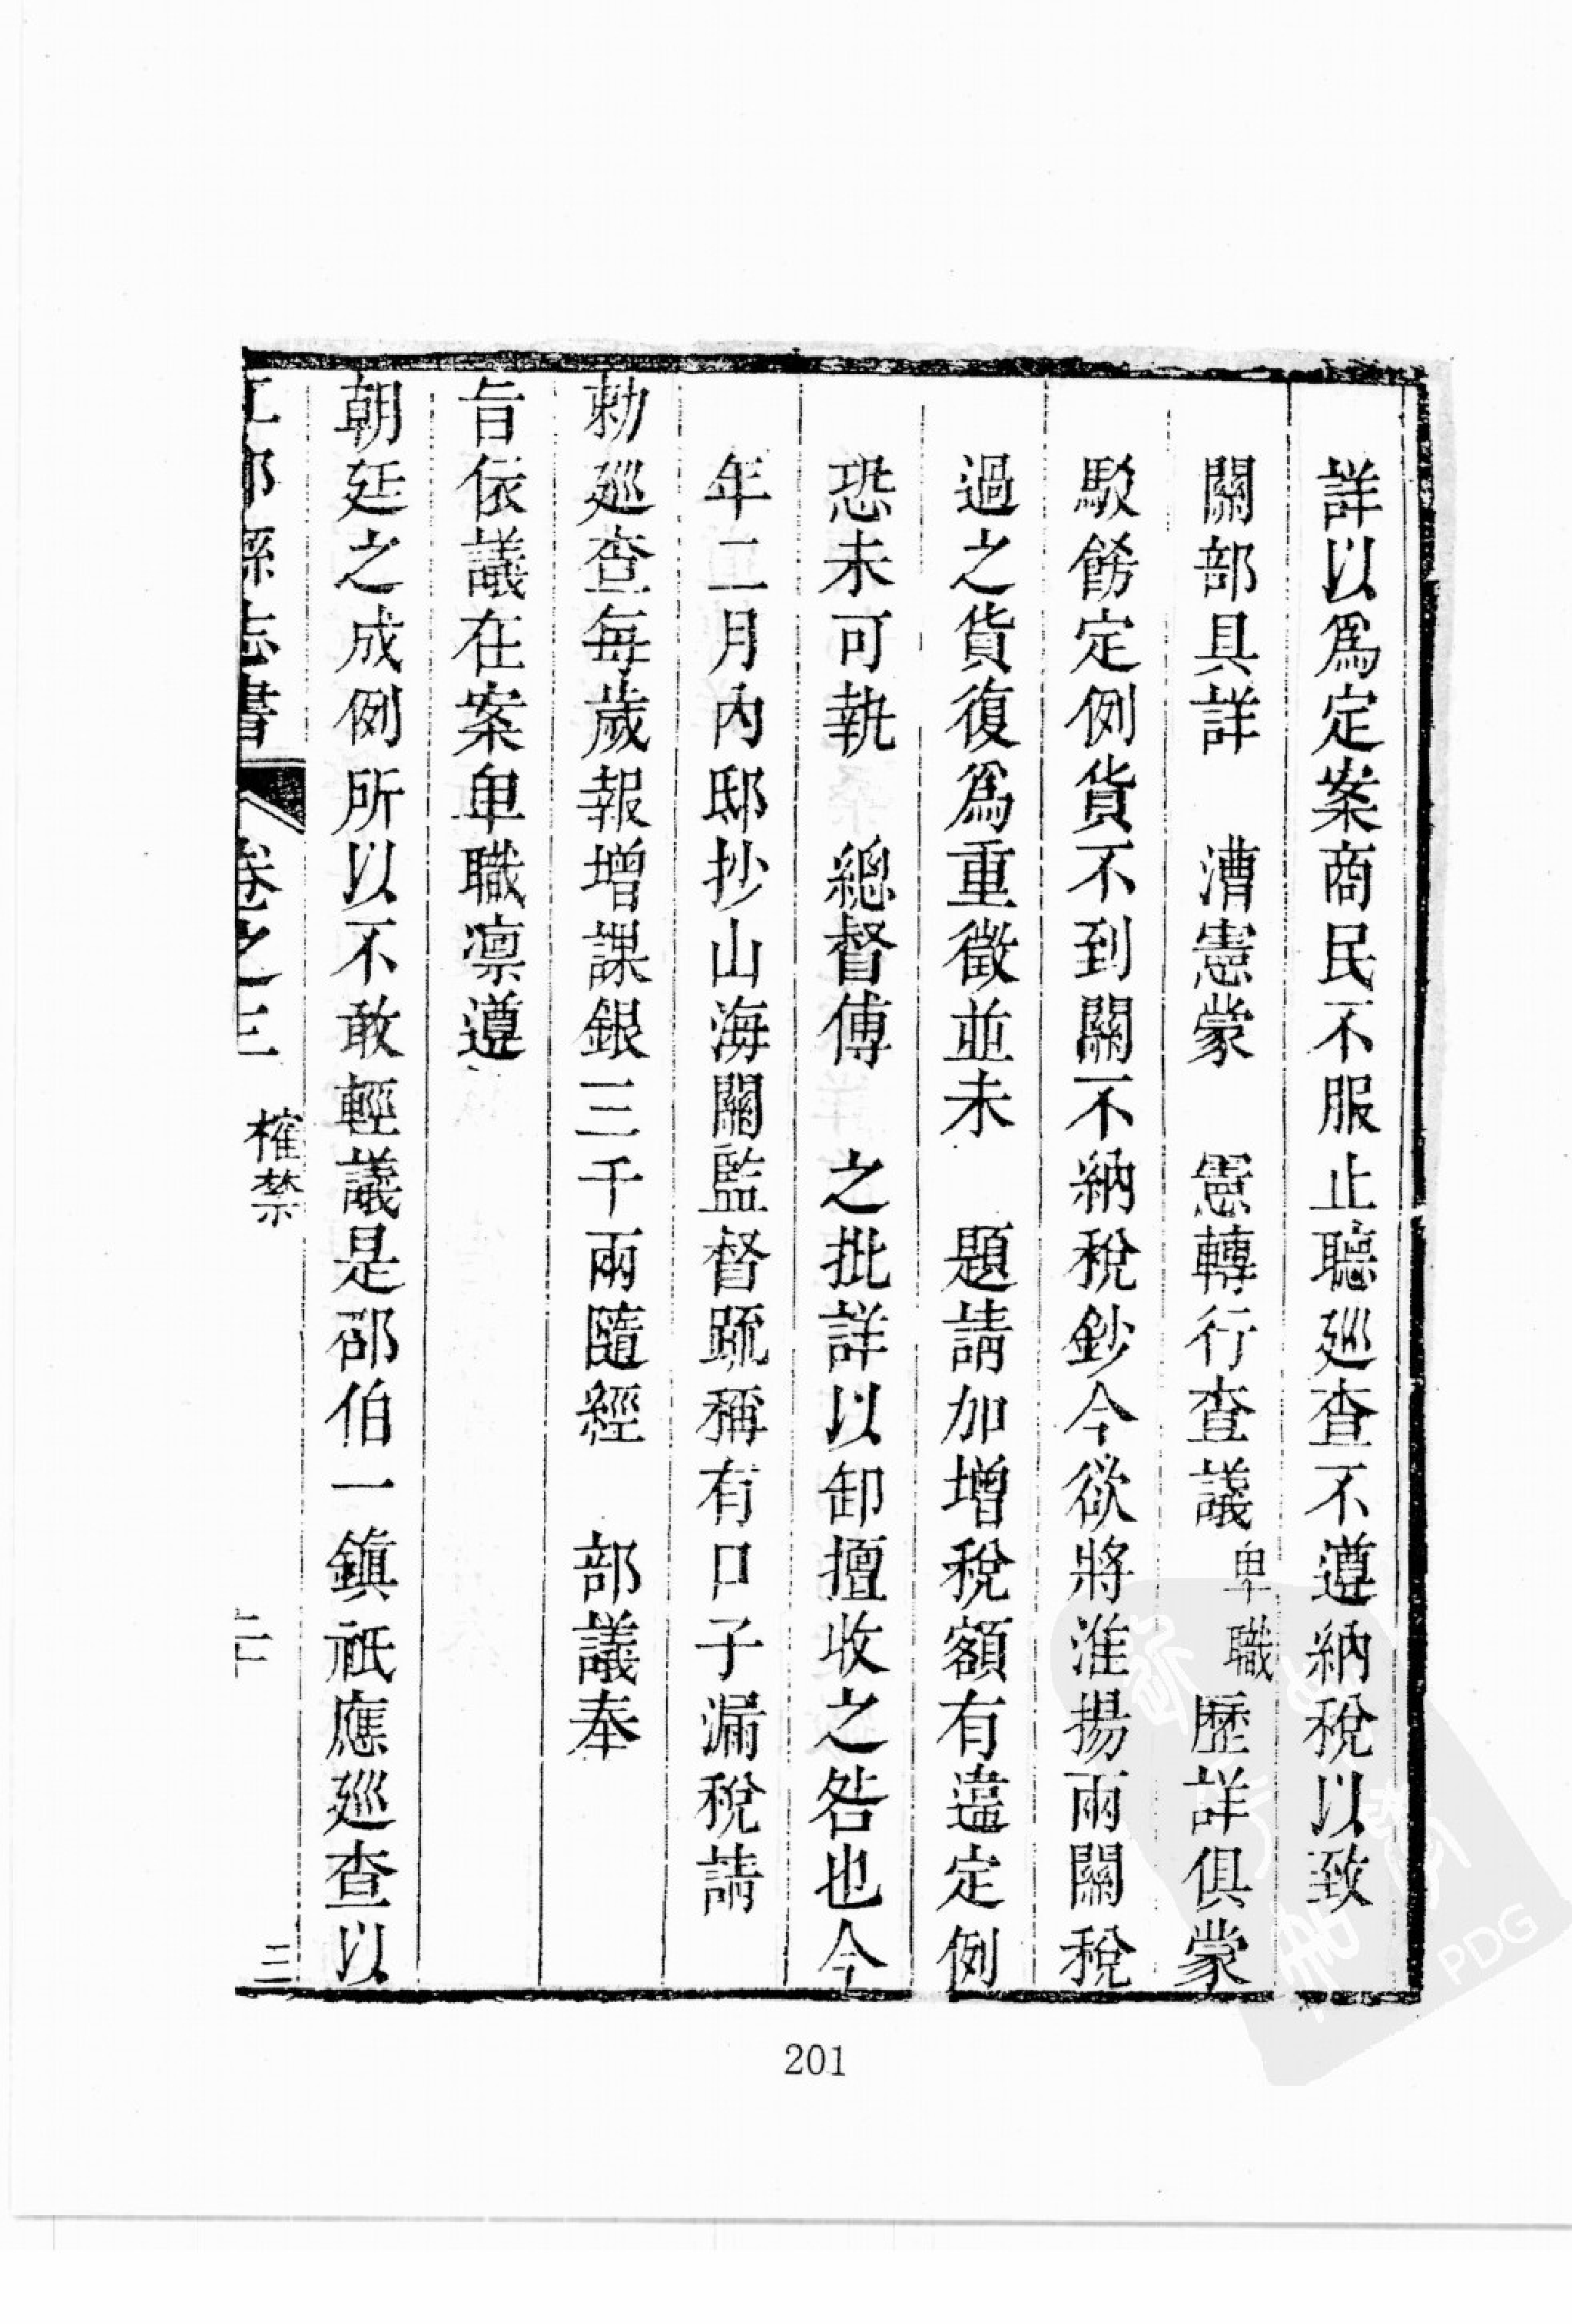 詳以爲定案商民不服止聽廵查不遵納稅以致
關部具詳　漕憲蒙　憲轉行查議卑職歷詳俱蒙
駁餝定例貨不到關不納稅鈔今欲將淮揚兩關稅
過之貨復爲重徵並未　題請加增稅額有違定例
恐未可執　總督傅　之批詳以卸擅收之咎也今
年二月內邸抄山海關監督䟽稱有口子漏稅請
勅廵查每歲報增課銀三千兩隨經　部議奉
旨依議在案卑職凛遵
朝廷之成例所以不敢輕議是邵伯一鎮祇應廵查以
江都縣志書　卷之三　榷禁　三
201
PDG